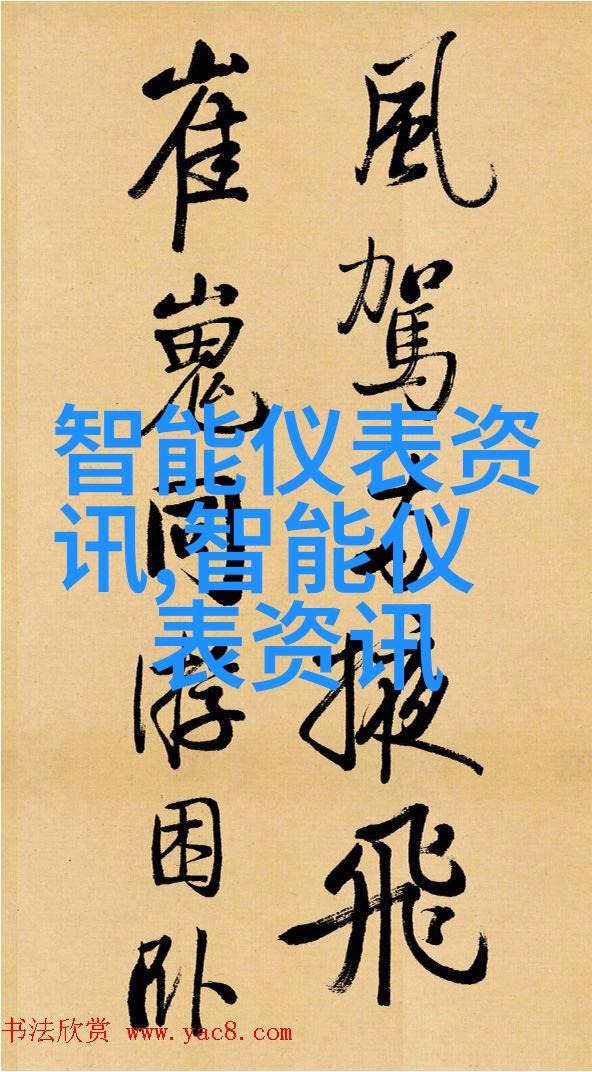 風駕腋飛
崔嵬同游困卧
智能仪表资
讯,智能仪
表资讯
书法欣赏 www.yac8.com